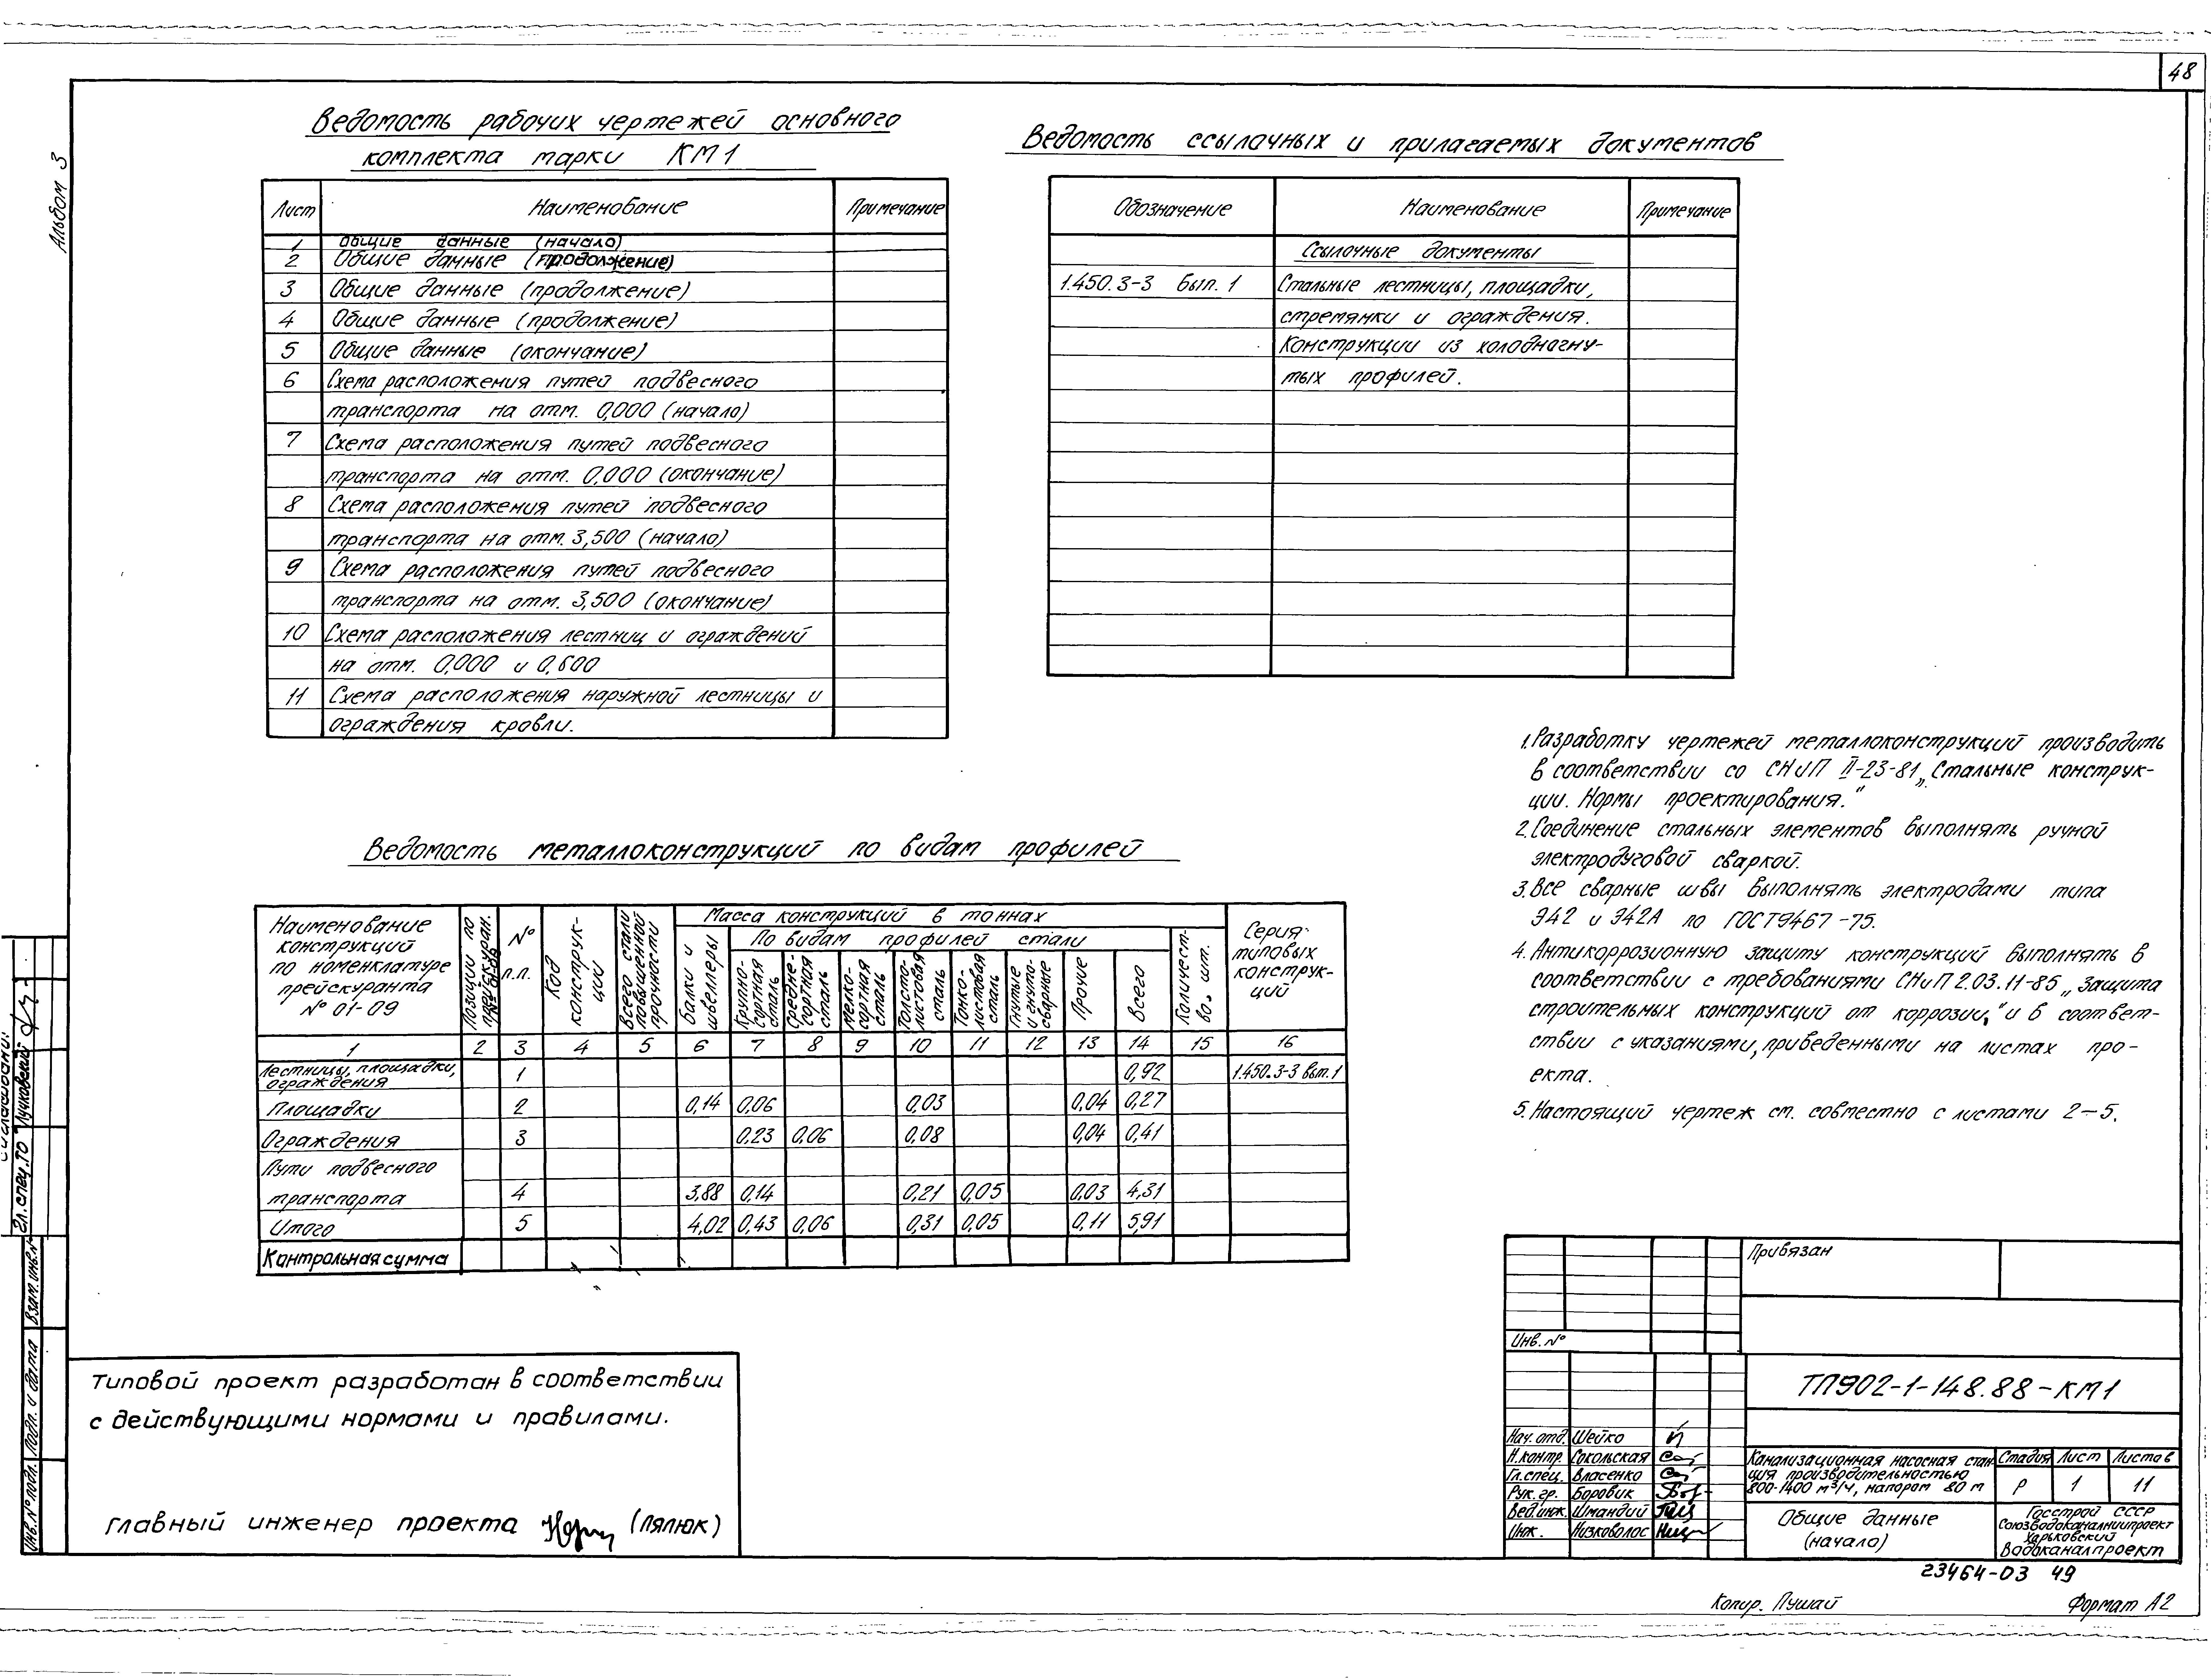 48
Альбом 3
Ведомость рабочих чертежей основного
комплекта марки КМ1
Лист Наименование Примечание
1 Общие данные (начало)
2 Общие данные (продолжение)
3 Общие данные (продолжение)
4 Общие данные (продолжение)
5 Общие данные (окончание)
6 Схема расположения путей подвесного
транспорта на отм. 0,000 (начало)
7 Схема расположения путей подвесного
транспорта на отм. 0,000 (окончание)
8 Схема расположения путей подвесного
транспорта на отм. 3,500 (начало)
9 Схема расположения путей подвесного
транспорта на отм. 3,500 (окончание)
10 Схема расположения лестниц и ограждений
на отм. 0,000 и 0,600
11 Схема расположения наружной лестницы и
ограждения кровли.
Ведомость ссылочных и прилагаемых документов
Обозначение Наименование Примечание
Ссылочные документы
1.450.3-3 Вып. 1 Стальные лестницы, площадки,
стремянки и ограждения.
Конструкции из холодногну-
тых профилей.
1. Разработку чертежей металлоконструкций производить
в соответствии со СНиП II-23-81 „Стальные конструк-
ции. Нормы проектирования."
2. Соединение стальных элементов выполнять ручной
электродуговой сваркой.
3. Все сварные швы выполнять электродами типа
Э42 и Э42А по ГОСТ9467-75.
4. Антикоррозионную защиту конструкций выполнять в
соответствии с требованиями СНиП 2.03.11-85 „Защита
строительных конструкций от коррозии" и в соответ-
ствии с указаниями, приведенными на листах про-
екта.
5. Настоящий чертеж см. совместно с листами 2-5.
Ведомость металлоконструкций по видам профилей
Наименование конструкций по номенклатуре прейскуранта № 01-09
Позиции по прейскуран. № 01-09
№ п.п.
Код конструк-ций
Всего стали повышенной прочности
Масса конструкций в тоннах
По видам профилей стали
Балки и швеллеры
Крупно-сортная сталь
Средне-сортная сталь
Мелко-сортная сталь
Толсто-листовая сталь
Тонко-листовая сталь
Гнутые и гнуто-сварные
Прочие
Всего
Количест-во, шт.
Серия типовых конструк-ций
1 2 3 4 5 6 7 8 9 10 11 12 13 14 15 16
Лестницы, площадки, ограждения 1 0,92 1.450.3-3 вып.1
Площадки 2 0,14 0,06 0,03 0,04 0,27
Ограждения 3 0,23 0,06 0,08 0,04 0,41
Пути подвесного
транспорта 4 3,88 0,14 0,21 0,05 0,03 4,31
Итого 5 4,02 0,43 0,06 0,31 0,05 0,11 5,91
Контрольная сумма
Типовой проект разработан в соответствии
с действующими нормами и правилами.
Главный инженер проекта (Лялюк)
Гл.спец.ТО Лучковский
Взам. инв.№
Подп. и дата
Инв.№ подл.
Привязан
Инв.№
ТП902-1-148.88-КМ1
Нач. отд. Шейко
Н.контр. Сокольская
Гл.спец. Власенко
Рук. гр. Боровик
Вед.инж. Шмандий
Инж. Низковолос
Канализационная насосная стан-
ция производительностью
800-1400 м³/ч, напором 80 м
Стадия Лист Листов
Р 1 11
Общие данные
(начало)
Госстрой СССР
Союзводоканалниипроект
Харьковский
Водоканалпроект
23464-03 49
Копир. Лушай
Формат А2